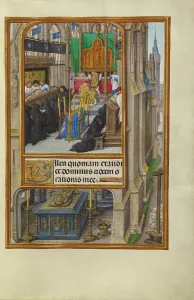 Ilexi quoniam exaudi
et dominus uocem o
rationis mee.